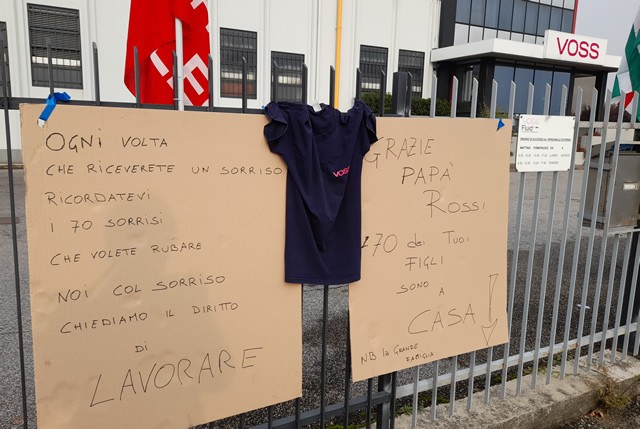 OGNI VOLTA
CHE RICEVERETE UN SORRISO
RICORDATEVI
I 70 SORRISI
CHE VOLETE RUBARE
NOI COL SORRISO
CHIEDIAMO IL DIRITTO
DI
LAVORARE
VOSS
GRAZIE
PAPÀ
ROSSI
70 dei TUOI
FIGLI
SONO
A
CASA!
NB la GRANDE
FAMIGLIA
VOSS
Fluid